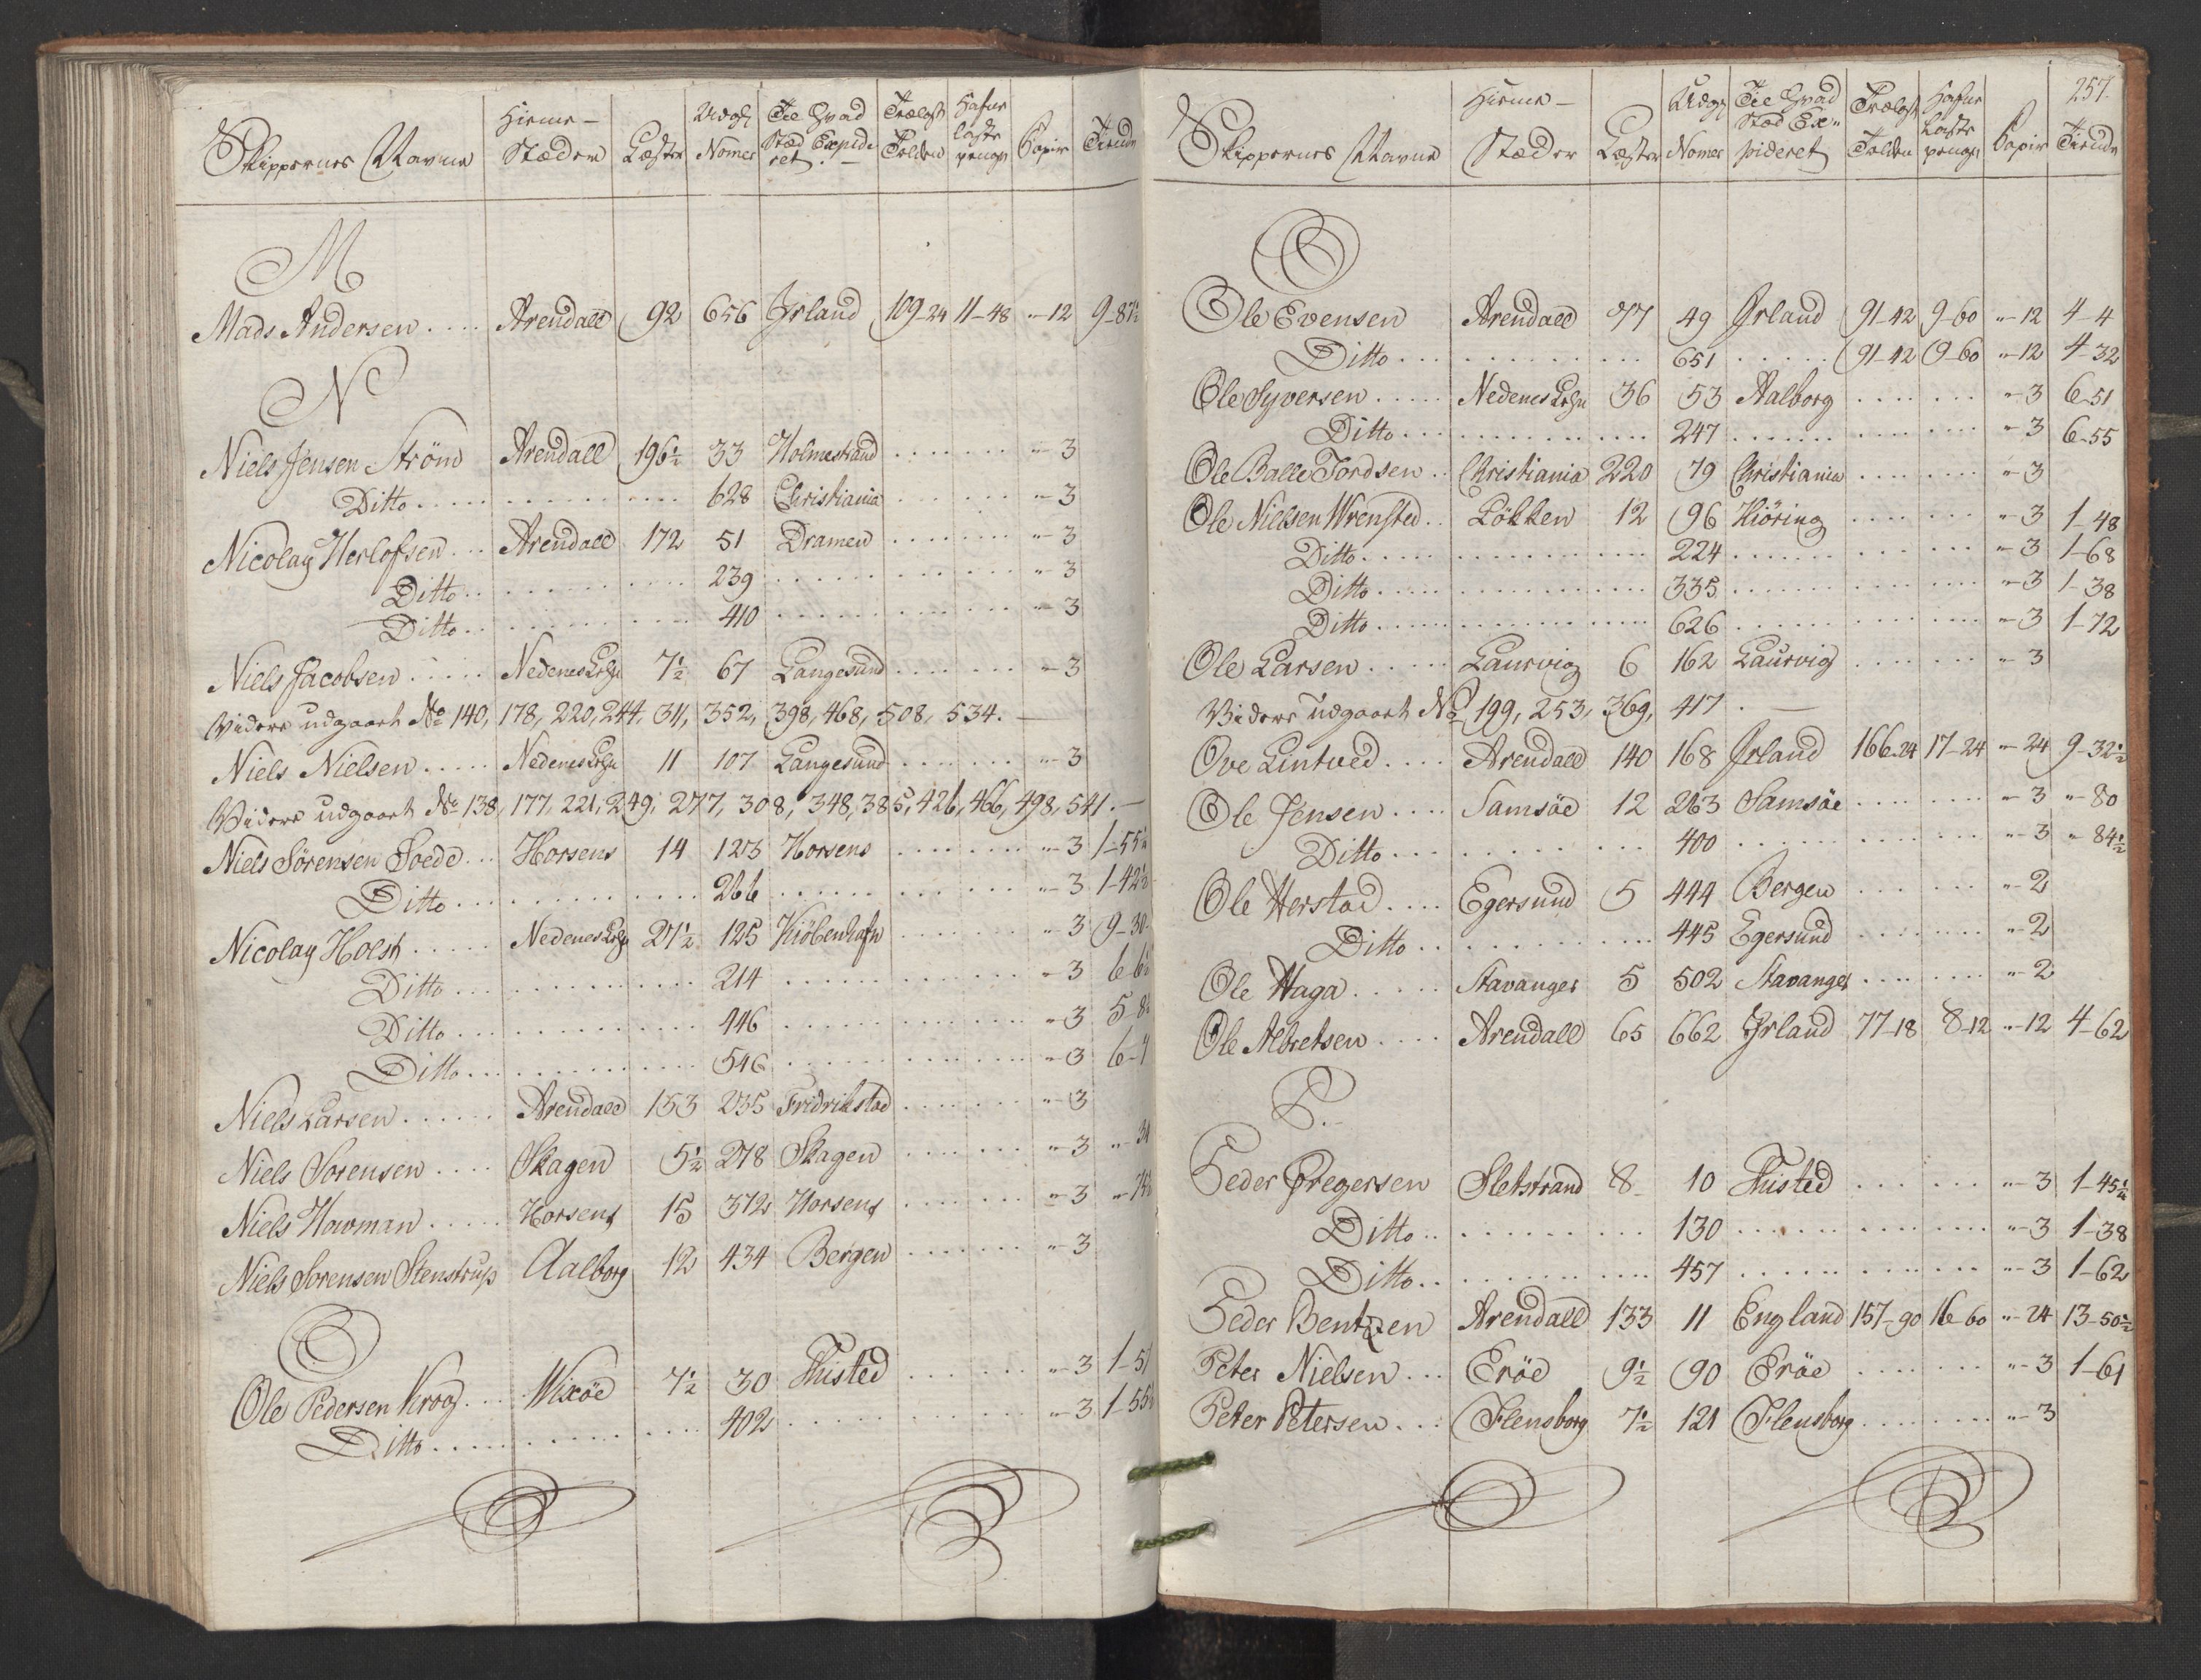 Skippernes Navne Hieme- Stæder Læster Udg: Nomer Til Hvad Stæd Expede- ret. Trælast Tolden Hafne laste penge Papir Tiende
M
Mads Andersen .... Arendall 92 656 Jrland 109-24 11-48 "-12 9-87½
N
Niels Jensen Ström Arendall 196½ 33 Holmestrand ...... "-3
Ditto ............ 628 Christiania ...... "-3
Nicolay Herlofsen ... Arendall 172 51 Dramen ...... "-3
Ditto ............ 239 ............ "-3
Ditto ............ 410 ............ "-3
Niels Jacobsen ..... Nedenes Lehn 7½ 67 Langesund ...... "-3
Videre udgaaet No 140, 178, 220, 244, 311, 352, 398, 468, 508, 534. —
Niels Nielsen ..... Nedenes Lehn 11 107 Langesund ...... "-3
Videre udgaaet No 138, 177, 221, 249, 277, 308, 348, 385, 426, 466, 498, 541. —
Niels Sörensen Soede ... Horsens 14 123 Horsens ...... "-3 1-55½
Ditto ............ 266 ............ "-3 1-42½
Nicolay Holst ..... Nedenes Lehn 27½ 125 Kiöbenhafn ...... "-3 9-30
Ditto ............ 214 ............ "-3 6-6½
Ditto ............ 446 ............ "-3 5-8½
Ditto ............ 546 ............ "-3 6-4
Niels Larsen ...... Arendall 153 235 Fridrikstad ...... "-3
Niels Sorensen .... Skagen 5½ 278 Skagen ...... "-3 "-34
Niels Howman ..... Horsens 15 372 Horsens ...... "-3
Niels Sorensen Stenstrup Aalborg 12 434 Bergen ...... "-3
O
Ole Pedersen Krog ... Wixöe 7½ 30 Thisted ...... "-3 1-57
Ditto ............ 402 ............ "-3 1-55½
257.
Skippernes Navne Hieme- Stæder Læster Udg: Nomer Til Hvad Stæd Ex- pideret Trælast Tolden Hafne Laste penge Papir Tiende
O
Ole Evensen Arendall 77 49 Jrland 91-42 9-60 "-12 4-4
Ditto ............ 651 ...... 91-42 9-60 "-12 4-32
Ole Syversen ..... Nedenes Lehn 36 53 Aalborg ...... "-3 6-51
Ditto ............ 247 ............ "-3 6-55
Ole Balle Tordsen .. Christiania 220 79 Christiania ...... "-3
Ole Nielsen Wrensted .. Lökken 12 96 Hiöring ...... "-3 1-48
Ditto ............ 224 ............ "-3 1-68
Ditto ............ 335 ............ "-3 1-38
Ditto ............ 626 ............ "-3 1-72
Ole Larsen ..... Laurvig 6 162 Laurvig ...... "-3
Videre udgaaet No 199, 253, 369, 417. —
Ove Lintved .... Arendall 140 168 Jrland 166-24 17-24 "-24 9-32½
Ole Jensen .... Samsöe 12 263 Samsöe ...... "-3 "-80
Ditto ............ 400 ............ "-3 "-84½
Ole Herstad .... Egersund 5 444 Bergen ...... "-2
Ditto ............ 445 Egersund ...... "-2
Ole Haga ..... Stavanger 5 502 Stavanger ...... "-2
Ole Albretsen .... Arendall 65 662 Jrland 77-18 8-12 "-12 4-62
P.
Peder Gregersen Sletstrand 8 10 Thisted ...... "-3 1-45½
Ditto ............ 130 ............ "-3 1-38
Ditto ............ 457 ............ "-3 1-62
Peder Bentzen Arendall 133 11 England 157-90 16-60 "-24 13-50½
Peter Nielsen ... Eröe 9½ 90 Eröe ...... "-3 1-61
Peter Petersen ... Flensborg 7½ 121 Flensborg ...... "-3